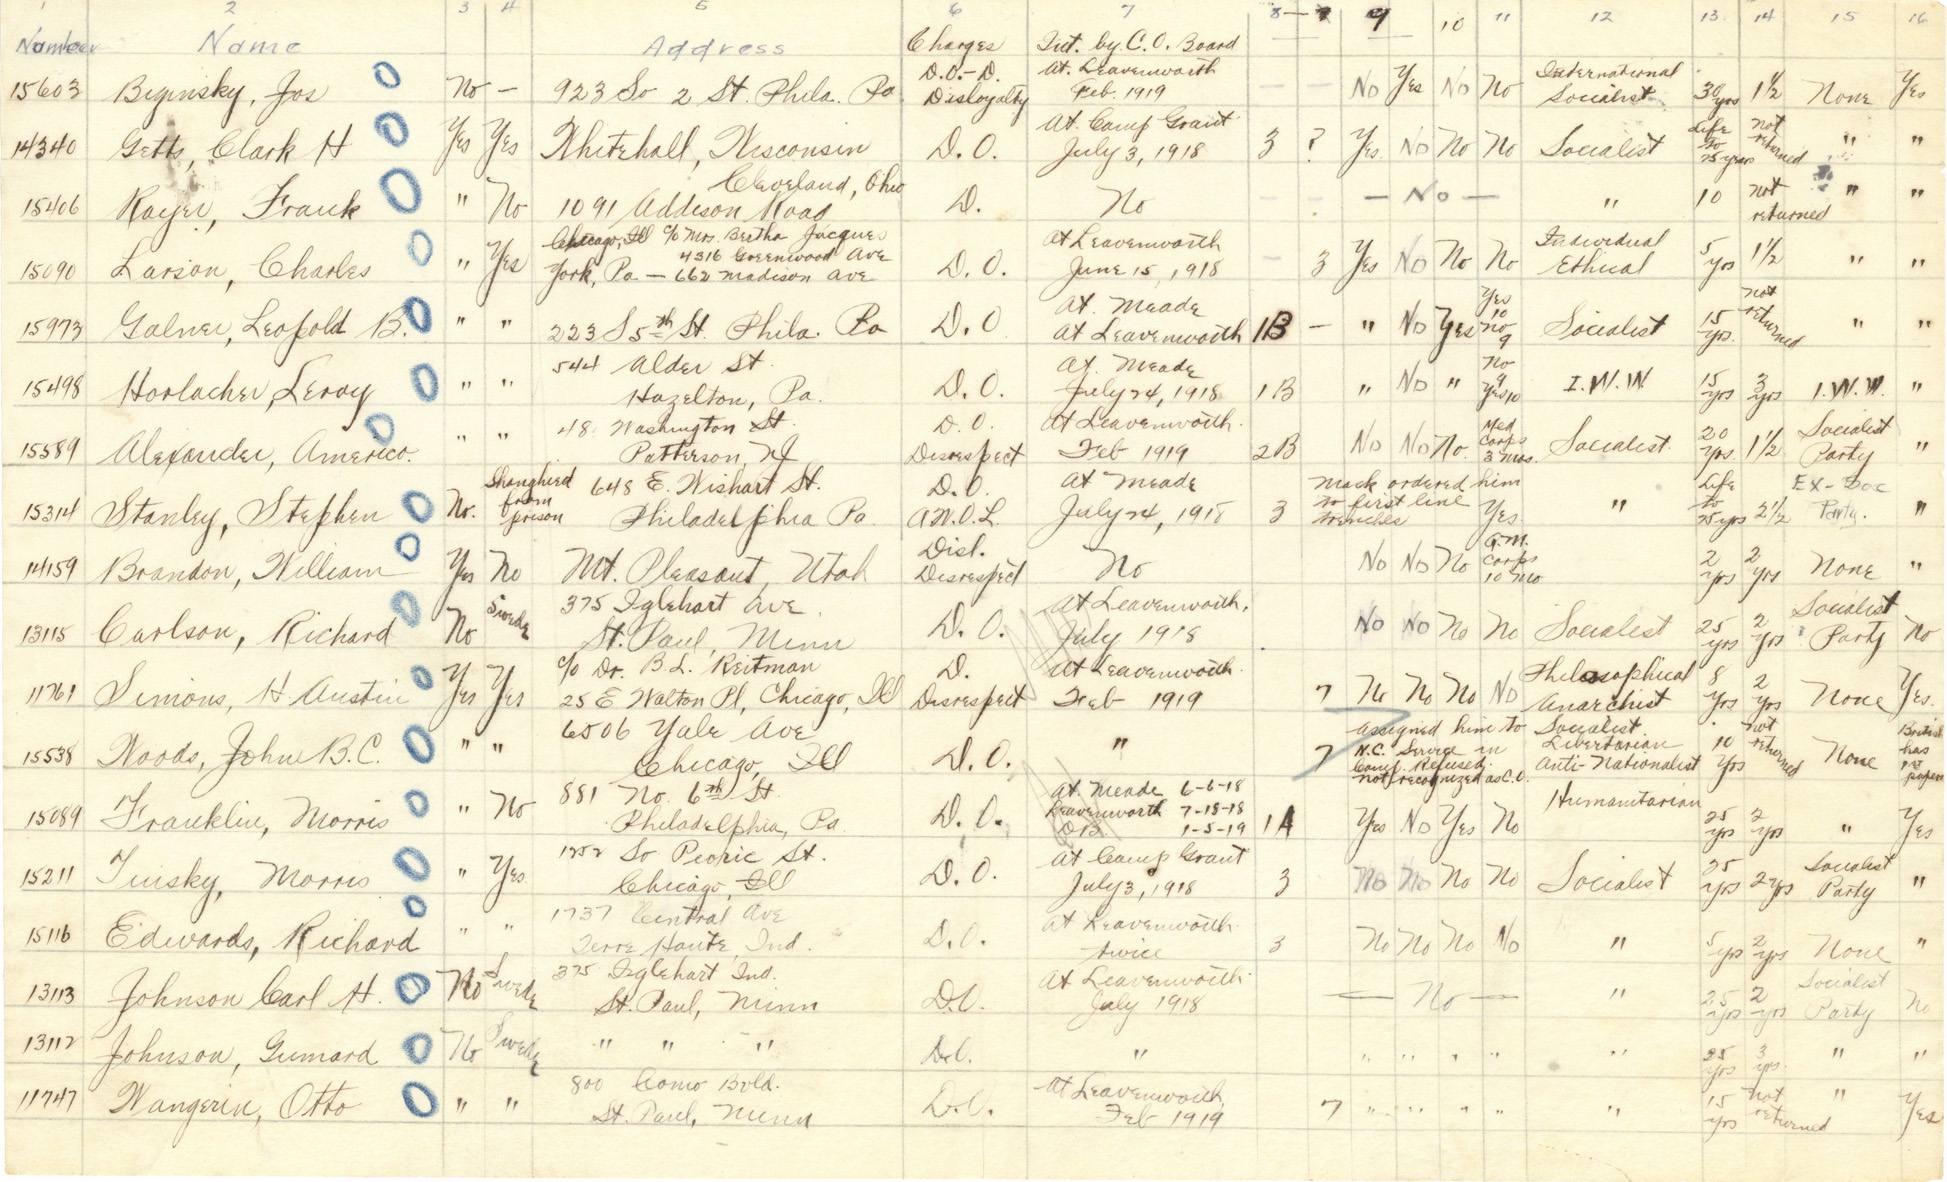 1 2 3 4 5 6 7 8 — 9 10 11 12 13 14 15 16
Number Name Address Charges Int. by C.O. Board
15603 Biginsky, Jos O No — 923 So 2 St. Phila. Pa D.O.-D. Disloyalty At Leavenworth Feb. 1919 — — No Yes No No International Socialist 30 yrs 1½ None Yes
14340 Getts, Clark H O Yes Yes Whitehall, Wisconsin D.O. At Camp Grant July 3, 1918 3 ? Yes No No No Socialist Life to 25 years not returned " "
15406 Rayer, Frank O " No Cleveland, Ohio 1091 Addison Road D. No — No — " 10 not returned " "
15090 Larson, Charles O " Yes Chicago, Ill c/o Mrs. Bertha Jacques 4316 Greenwood Ave York, Pa — 662 Madison Ave D.O. At Leavenworth June 15, 1918 — 3 Yes No No No Individual Ethical 5 yrs 1½ " "
15973 Galner, Leopold B. O " " 223 S 5th St. Phila. Pa D.O At Meade At Leavenworth 1B — " No Yes Yes 10 no 9 Socialist 15 yrs. not returned " "
15498 Horlacher, Leroy O " " 544 Alder St. Hazelton, Pa. D.O. At Meade July 24, 1918 1B " No " No 9 Yes 10 I.W.W. 15 yrs 3 yrs I.W.W. "
15589 Alexander, Americo. O " " 48 Washington St. Patterson, NJ D.O. Disrespect At Leavenworth Feb 1919 2B No No No. Med Corps 3 mos. Socialist 20 yrs 1½ Socialist Party "
15314 Stanley, Stephen O No. Shanghied from prison 648 E. Wishart St. Philadelphia Pa D.O. A.W.O.L. At Meade July 24, 1918 3 Mack ordered him to first line trenches Yes " Life to 25 yrs 2½ Ex-Soc Party. "
14159 Brandon, William O Yes No Mt. Pleasant, Utah Disl. Disrespect No No No No Q.M. Corps 10 mo 2 yrs 2 yrs None "
13115 Carlson, Richard O No Swede 375 Iglehart Ave. St. Paul, Minn D.O. At Leavenworth, July 1918 No No No No Socialist 25 yrs 2 yrs Socialist Party No
11761 Simons, H. Austin O Yes Yes c/o Dr. B.L. Reitman 25 E Walton Pl, Chicago, Ill D. Disrespect At Leavenworth Feb 1919 7 No No No No Philosophical Anarchist 8 yrs 2 yrs None Yes.
15538 Woods, John B.C. O " " 6506 Yale Ave Chicago, Ill D.O. " 7 Assigned him to N.C. Service in Camp. Refused. not recognized as C.O. Socialist Libertarian Anti-Nationalist 10 yrs not returned None British has 1st papers
15089 Franklin, Morris O " No 881 No. 6th St. Philadelphia, Pa. D.O. At Meade 6-6-18 Leavenworth 7-18-18 D.B. 1-5-19 1A Yes No Yes No Humanitarian 25 yrs 2 yrs " Yes
15211 Tinsky, Morris O " Yes 1252 So Peoria St. Chicago, Ill D.O. At Camp Grant July 3, 1918 3 No No No No Socialist 25 yrs 2 yrs Socialist Party "
15116 Edwards, Richard O " " 1737 Central Ave Terre Haute, Ind. D.O. At Leavenworth twice 3 No No No No " 5 yrs 2 yrs None "
13113 Johnson Carl H. O No Swede 375 Iglehart Ind. St. Paul, Minn D.O. At Leavenworth July 1918 — No — " 25 yrs 2 yrs Socialist Party No
13112 Johnson, Gumard O No Swede " " " D.O. " " " " " " 25 yrs 3 yrs. " "
11747 Wangerin, Otto O " " 800 Como Bvld. St. Paul, Minn D.O. At Leavenworth Feb 1919 7 " " " " " 15 yrs not returned " Yes